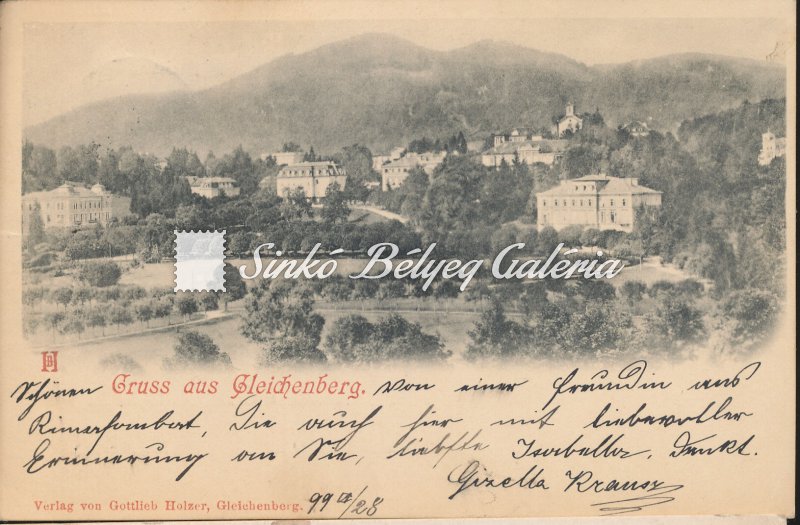 Sinkó Bélyeg Galéria
Schönen Gruss aus Gleichenberg. von einer Freundin aus
Rimaszombat, die auch hier mit liebevoller
Erinnerung an Sie, liebste Isabella, denkt.
Gizella Krausz
Verlag von Gottlieb Holzer, Gleichenberg. 99 /28